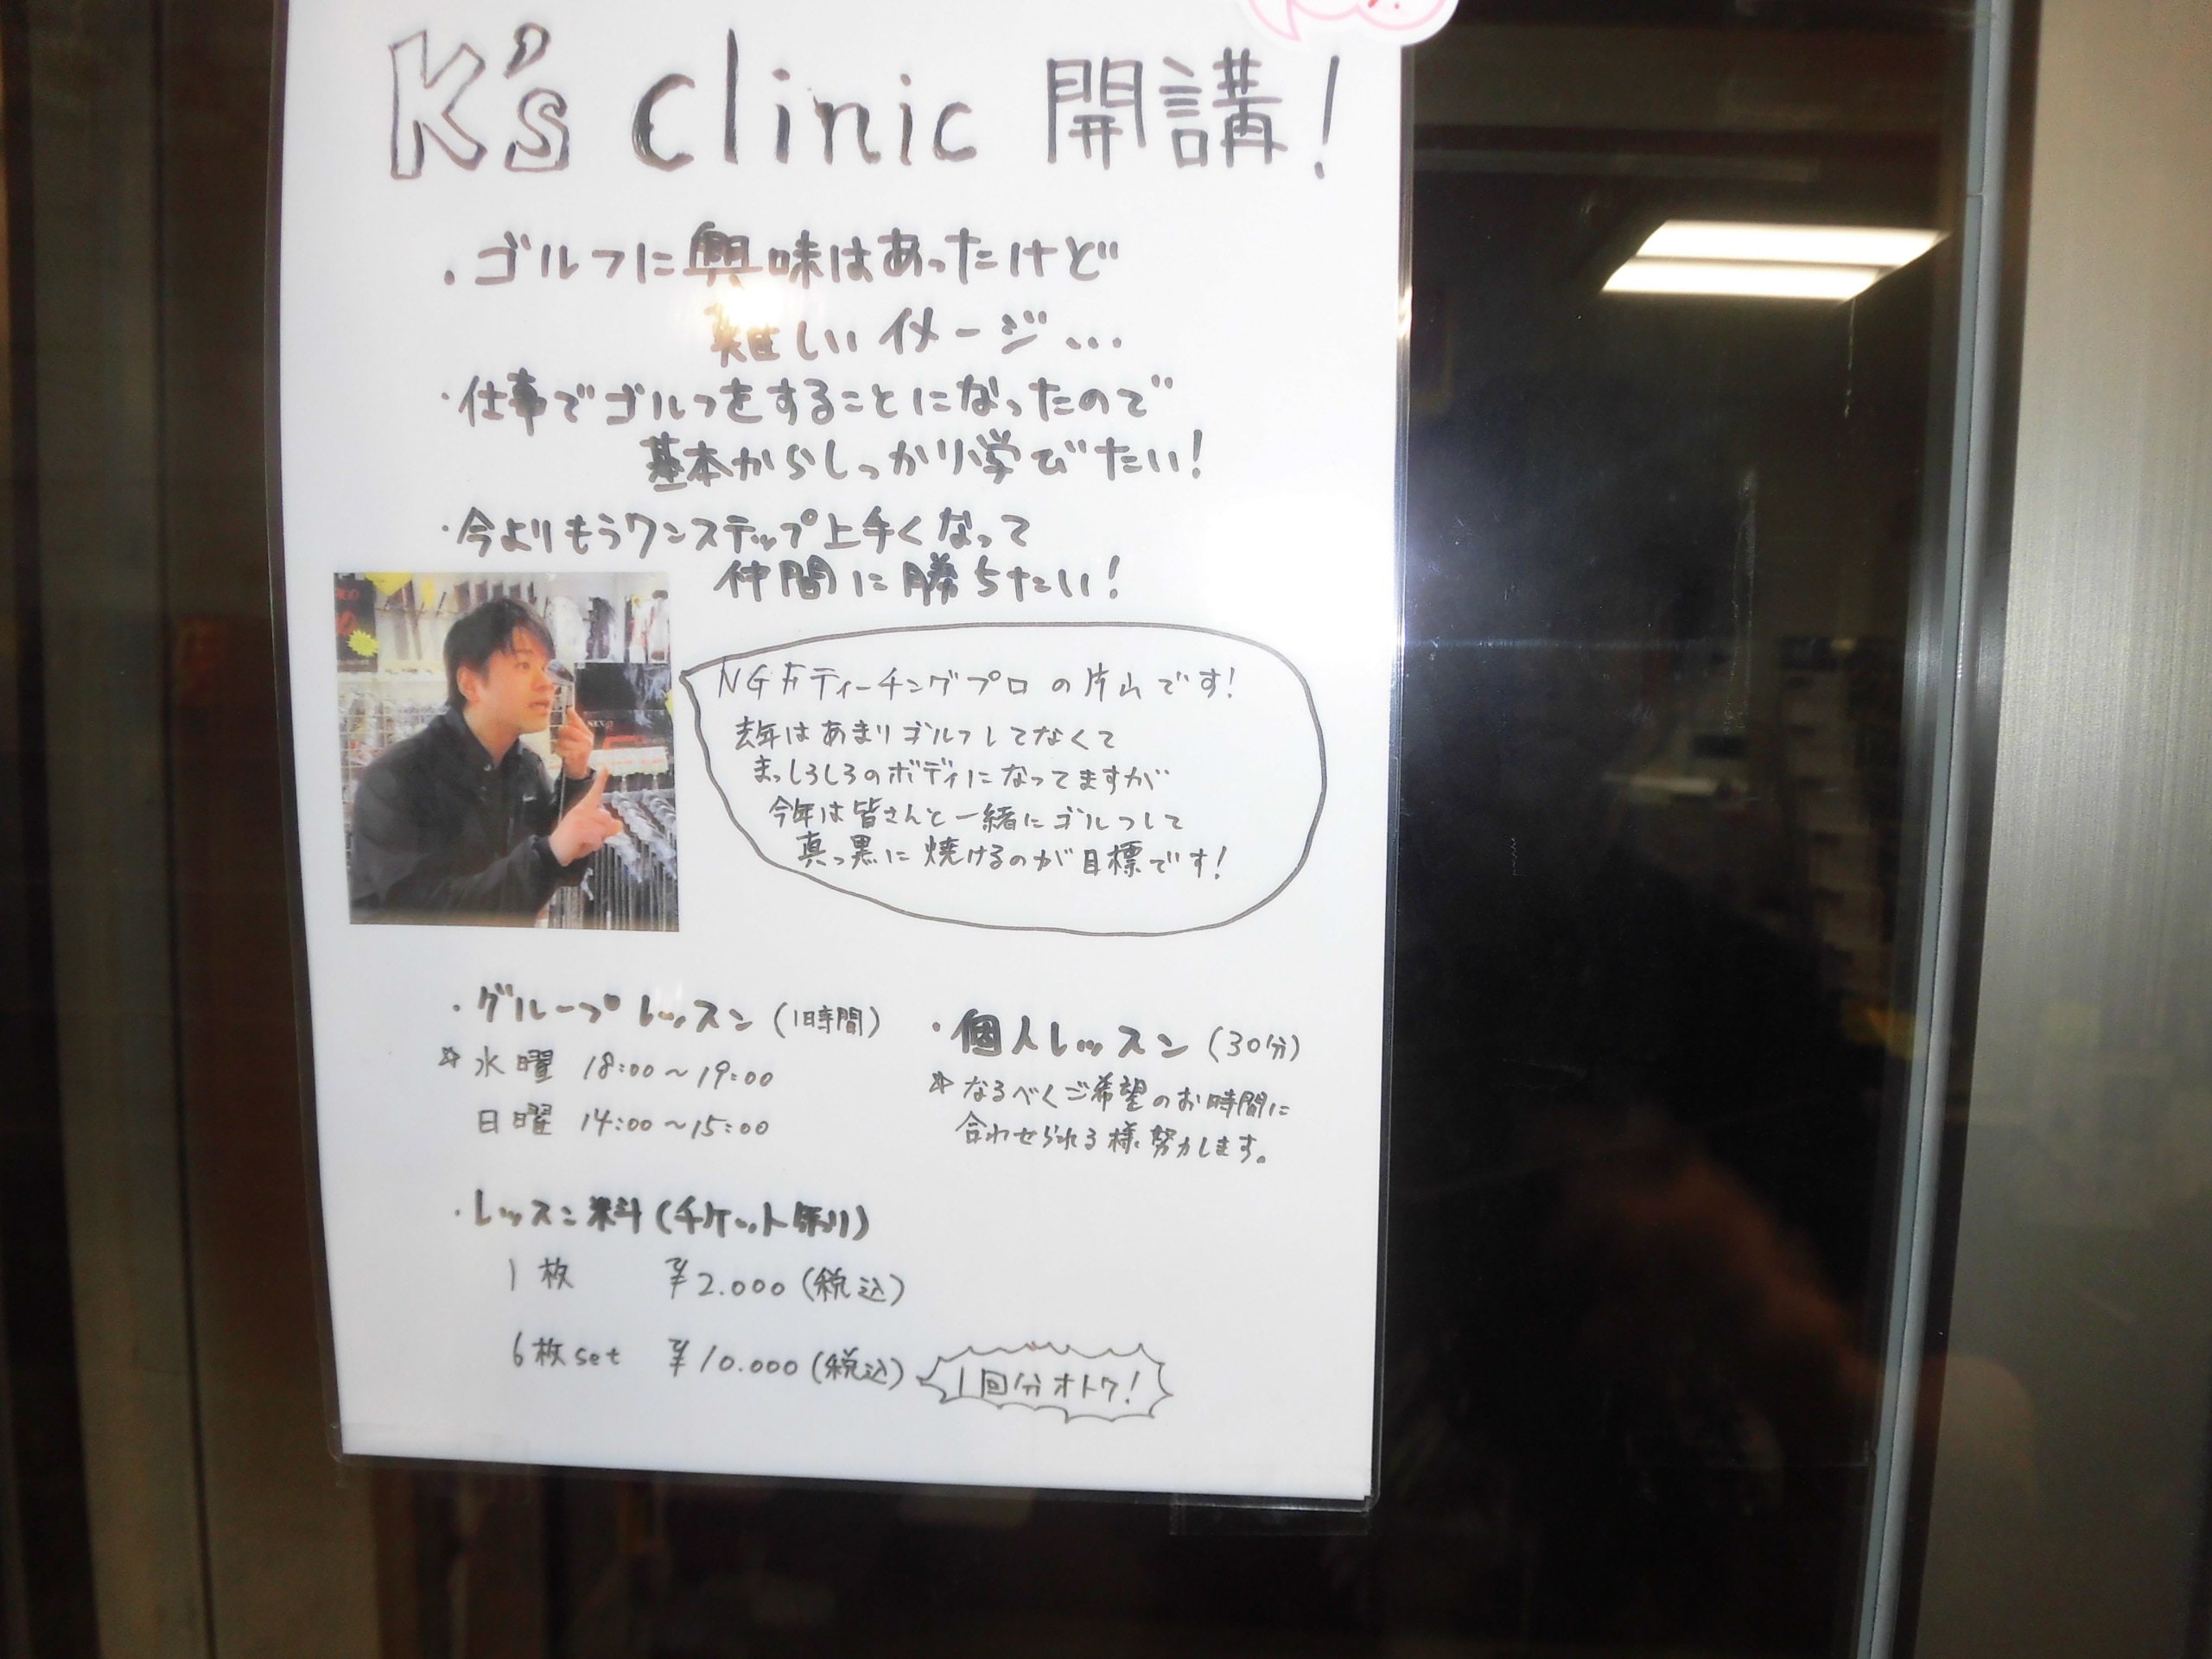 K's clinic 開講!
・ゴルフに興味はあったけど
難しいイメージ...
・仕事でゴルフをすることになったので
基本からしっかり学びたい!
・今よりもうワンステップ上手くなって
仲間に勝ちたい!
NGFティーチングプロの片山です!
去年はあまりゴルフしてなくて
まっしろしろのボディになってますが
今年は皆さんと一緒にゴルフして
真っ黒に焼けるのが目標です!
・グループレッスン(1時間)
☆水曜 18:00~19:00
日曜 14:00~15:00
・個人レッスン(30分)
☆なるべくご希望のお時間に
合わせられる様努力します。
・レッスン料(チケット制)
1枚 ¥2.000(税込)
6枚set ¥10.000(税込)
1回分オトク!